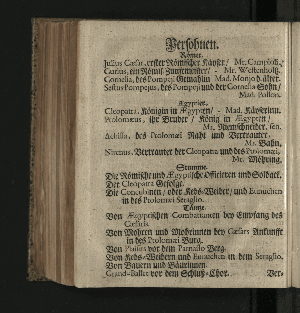 Persohnen.
Römer.
Julius Cæsar, erster Römischer Käyser / Mr. Campioli.
Curius, ein Römis. Zunftmeister / - Mr. Westenholtz.
Cornelia, des Pompeji Gemahlin Mad. Monjo d. älter.
Sextus Pompejus, des Pompeji und der Cornelia Sohn /
Mad. Pollon.
Ægyptier.
Cleopatra, Königin in Ægypten / - Mad. Käyserinn.
Ptolomæus, ihr Bruder / König in Ægypten /
Mr. Riemschneider, sen.
Achilla, des Ptolomæi Raht und Vertrauter,
Mr. Bahn.
Nirenus, Vertrauter der Cleopatra und des Ptolomæi,
Mr. Möhring.
Stumme.
Die Römische und Ægyptische Officieren und Soldaten.
Der Cleopatra Gefolge.
Die Concubinen / oder Kebs-Weiber / und Eunuchen
in des Ptolomæi Seraglio.
Täntze.
Von Ægyptischen Combattanten bey Empfang des
Cæsaris.
Von Mohren und Mohrinnen bey Cæsars Ankunfft
in des Ptolomæi Burg.
Von Plaisirs vor dem Parnasso Berg.
Von Kebs-Weibern und Eunuchen in dem Seraglio.
Von Bauern und Bäurinnen.
Grand-Ballet vor dem Schluß-Chor. Ver-